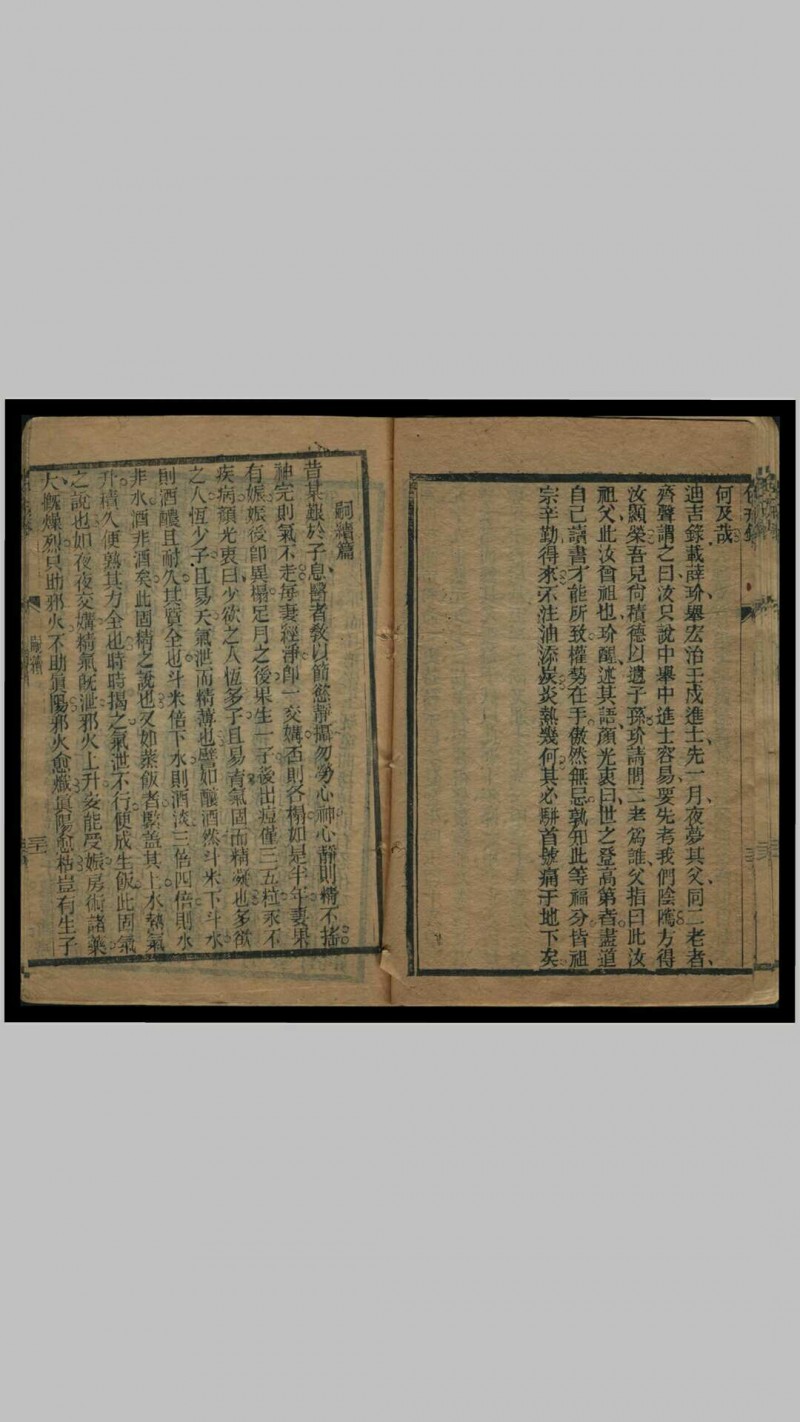 何及哉
迪吉錄載薛玠舉宏治壬戌進士先一月夜夢其父同二老者
齊聲謂之曰汝只說中舉中進士容易要先考我們陰隲方得
汝顯榮吾兒尙積德以遺子孫玠請問二老爲誰父指曰此汝
祖父此汝曾祖也玠醒述其語顏光衷曰世之登高第者盡道
自己讀書才能所致權勢在手傲然無忌孰知此等福分皆祖
宗辛勤得來不注油添炭炎熱幾何其必駢首號痛于地下矣
嗣續篇
昔某艱於子息醫者敎以節慾靜攝勿勞心神心靜則精不搖
神完則氣不走每妻經淨卽一交媾否則各榻如是半年妻果
有娠娠後卽異榻足月之後果生一子後出痘僅三五粒永不
疾病顏光衷曰少欲之人恆多子且易育氣固而精凝也多欲
之人恆少子且易夭氣泄而精薄也譬如釀酒然斗米下斗水
則酒醲且耐久其質全也斗米倍下水則酒淡三倍四倍則水
非水酒非酒矣此固精之說也又如蒸飯者緊蓋其上水熱氣
升積久便熟其力全也時時揭之氣泄不行便成生飯此固氣
之說也如夜夜交媾精氣旣泄邪火上升安能受娠房術諸藥
大概燥烈只助邪火不助眞陽邪火愈熾眞陽愈枯豈有生子
嗣續